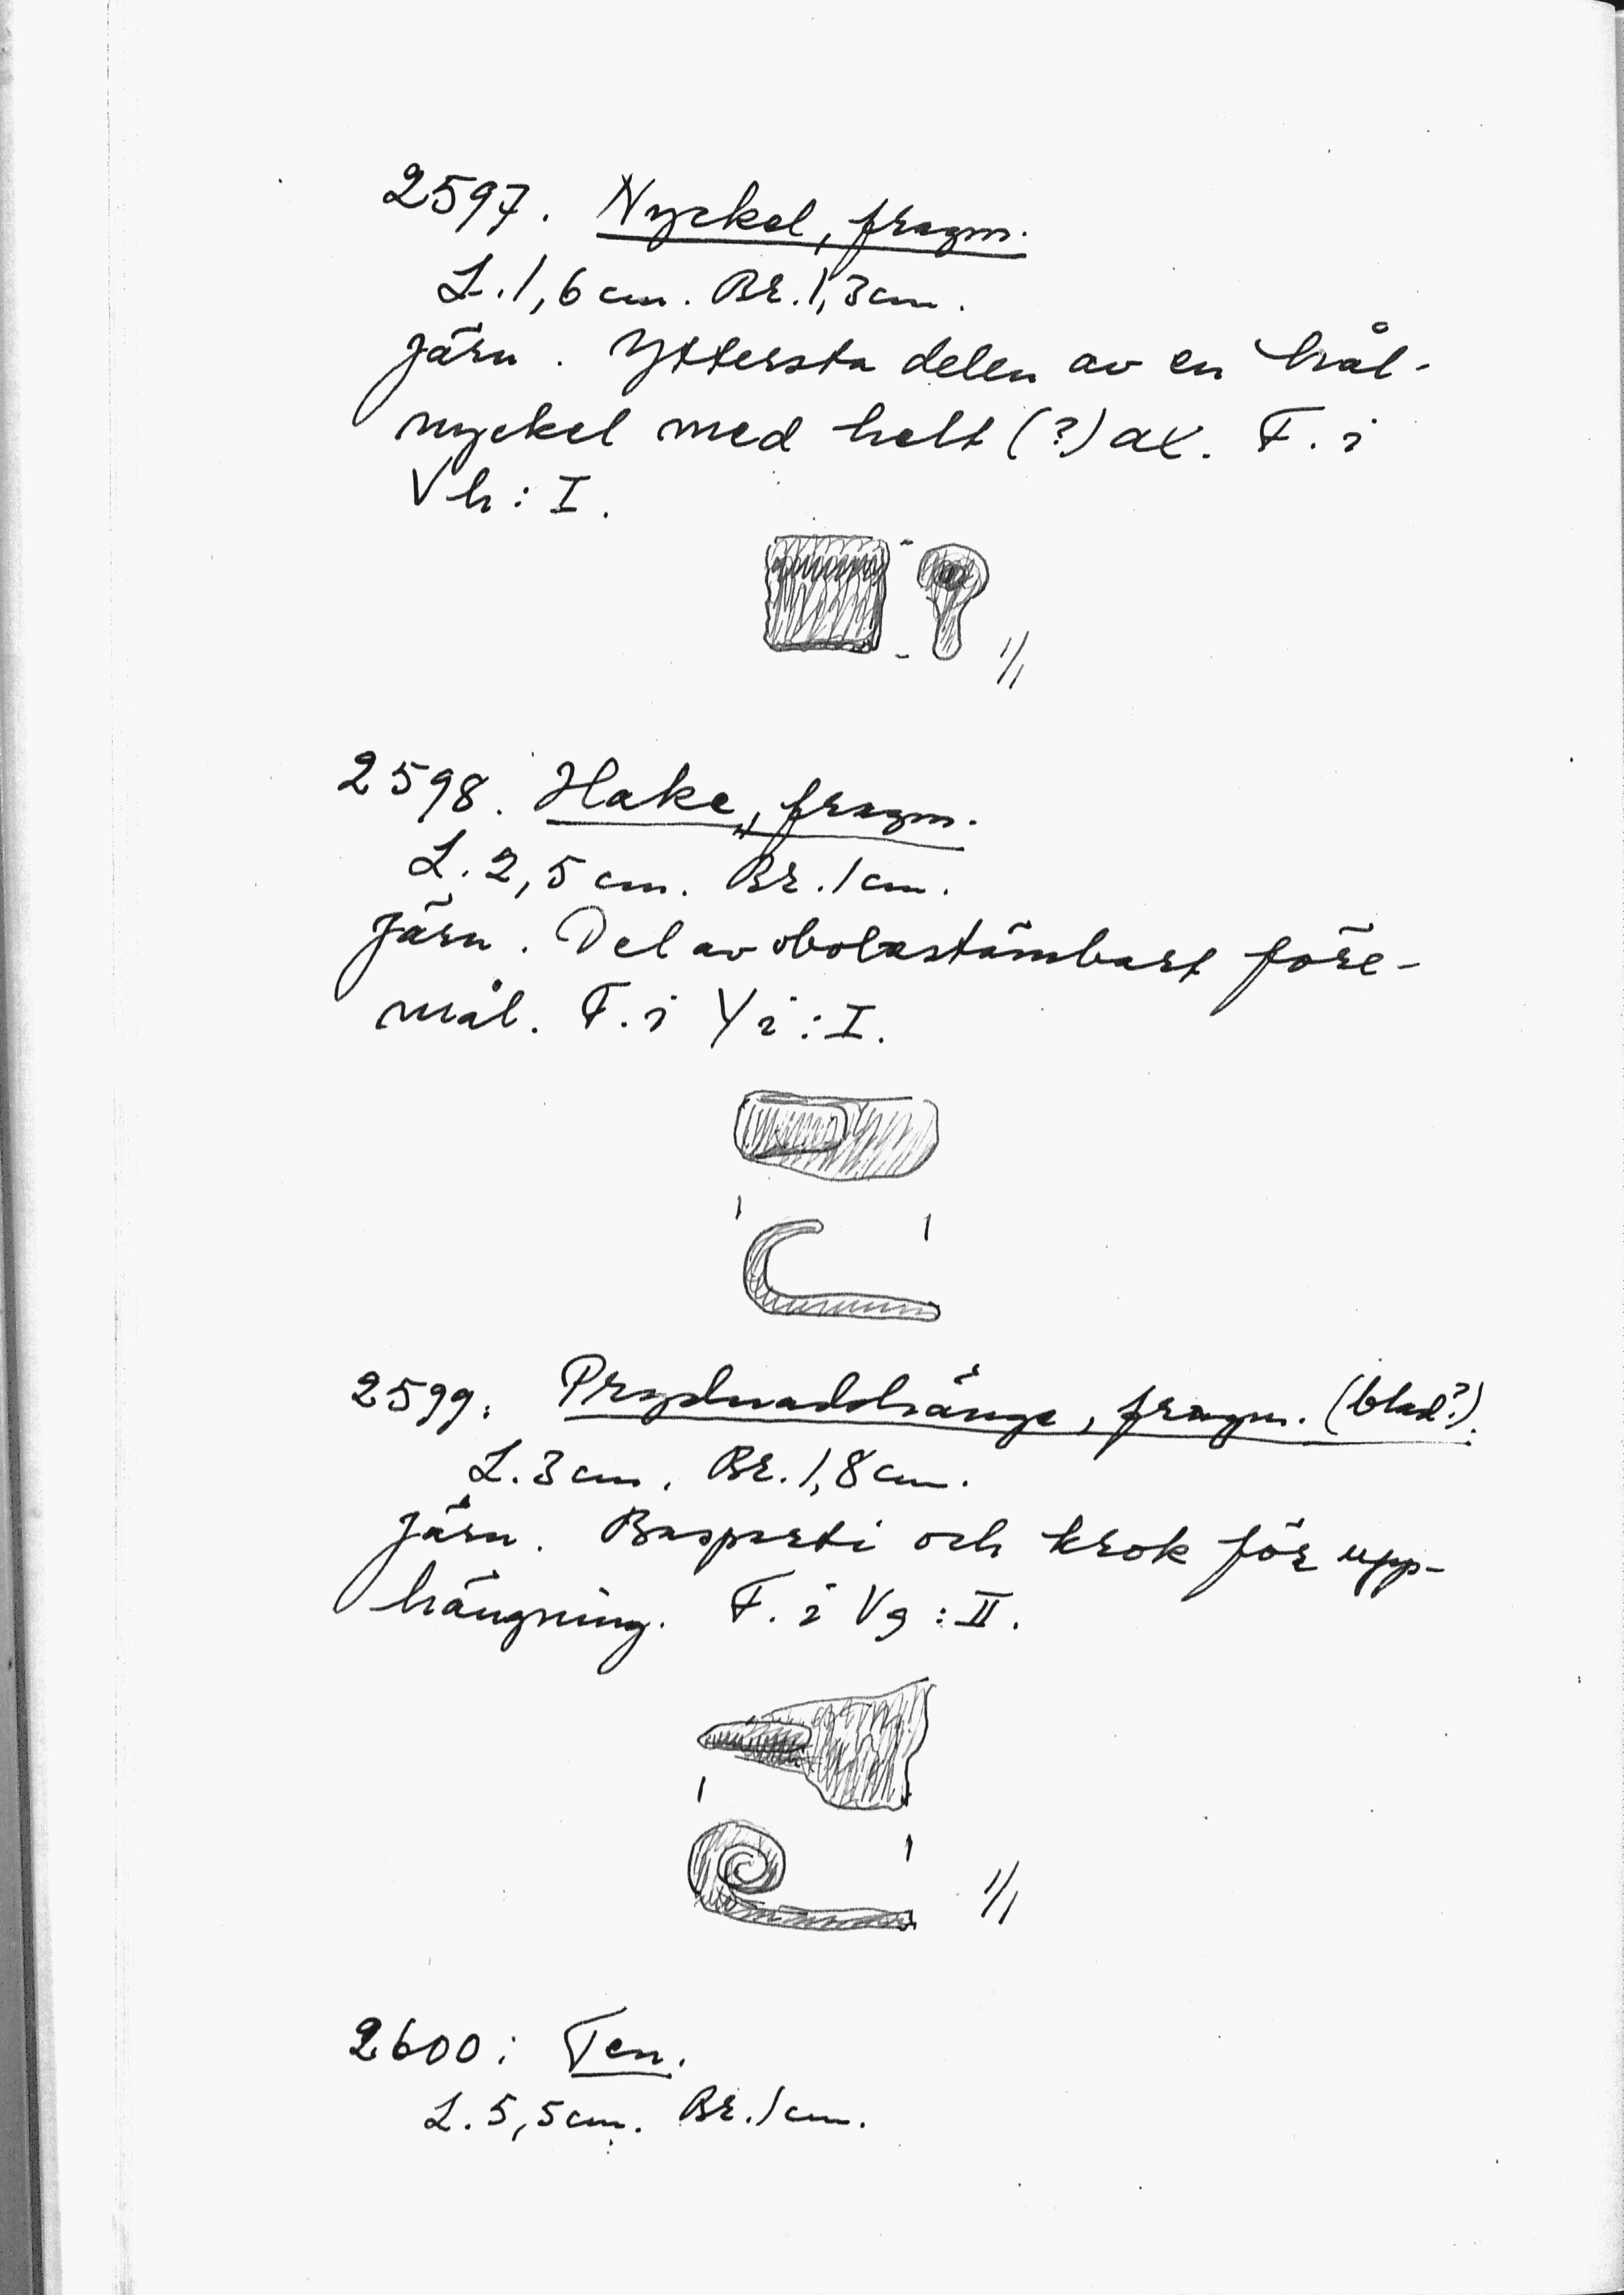 2597. Nyckel, fragm.
L. 1,6 cm. Br. 1,3 cm.
Järn. Yttersta delen av en hål-
nyckel med helt (?) ax. F. i
Vh: I.
1/1
2598. Hake, fragm.
L. 2,5 cm. Br. 1 cm.
Järn. Del av obestämbart före-
mål. F. i Yi: I.
2599. Prydnadshänge, fragm. (blad?).
L. 3 cm. Br. 1,8 cm.
Järn. Basparti och krok för upp-
hängning. F. i Vg: II.
1/1
2600: Ten.
L. 5,5 cm. Br. 1 cm.